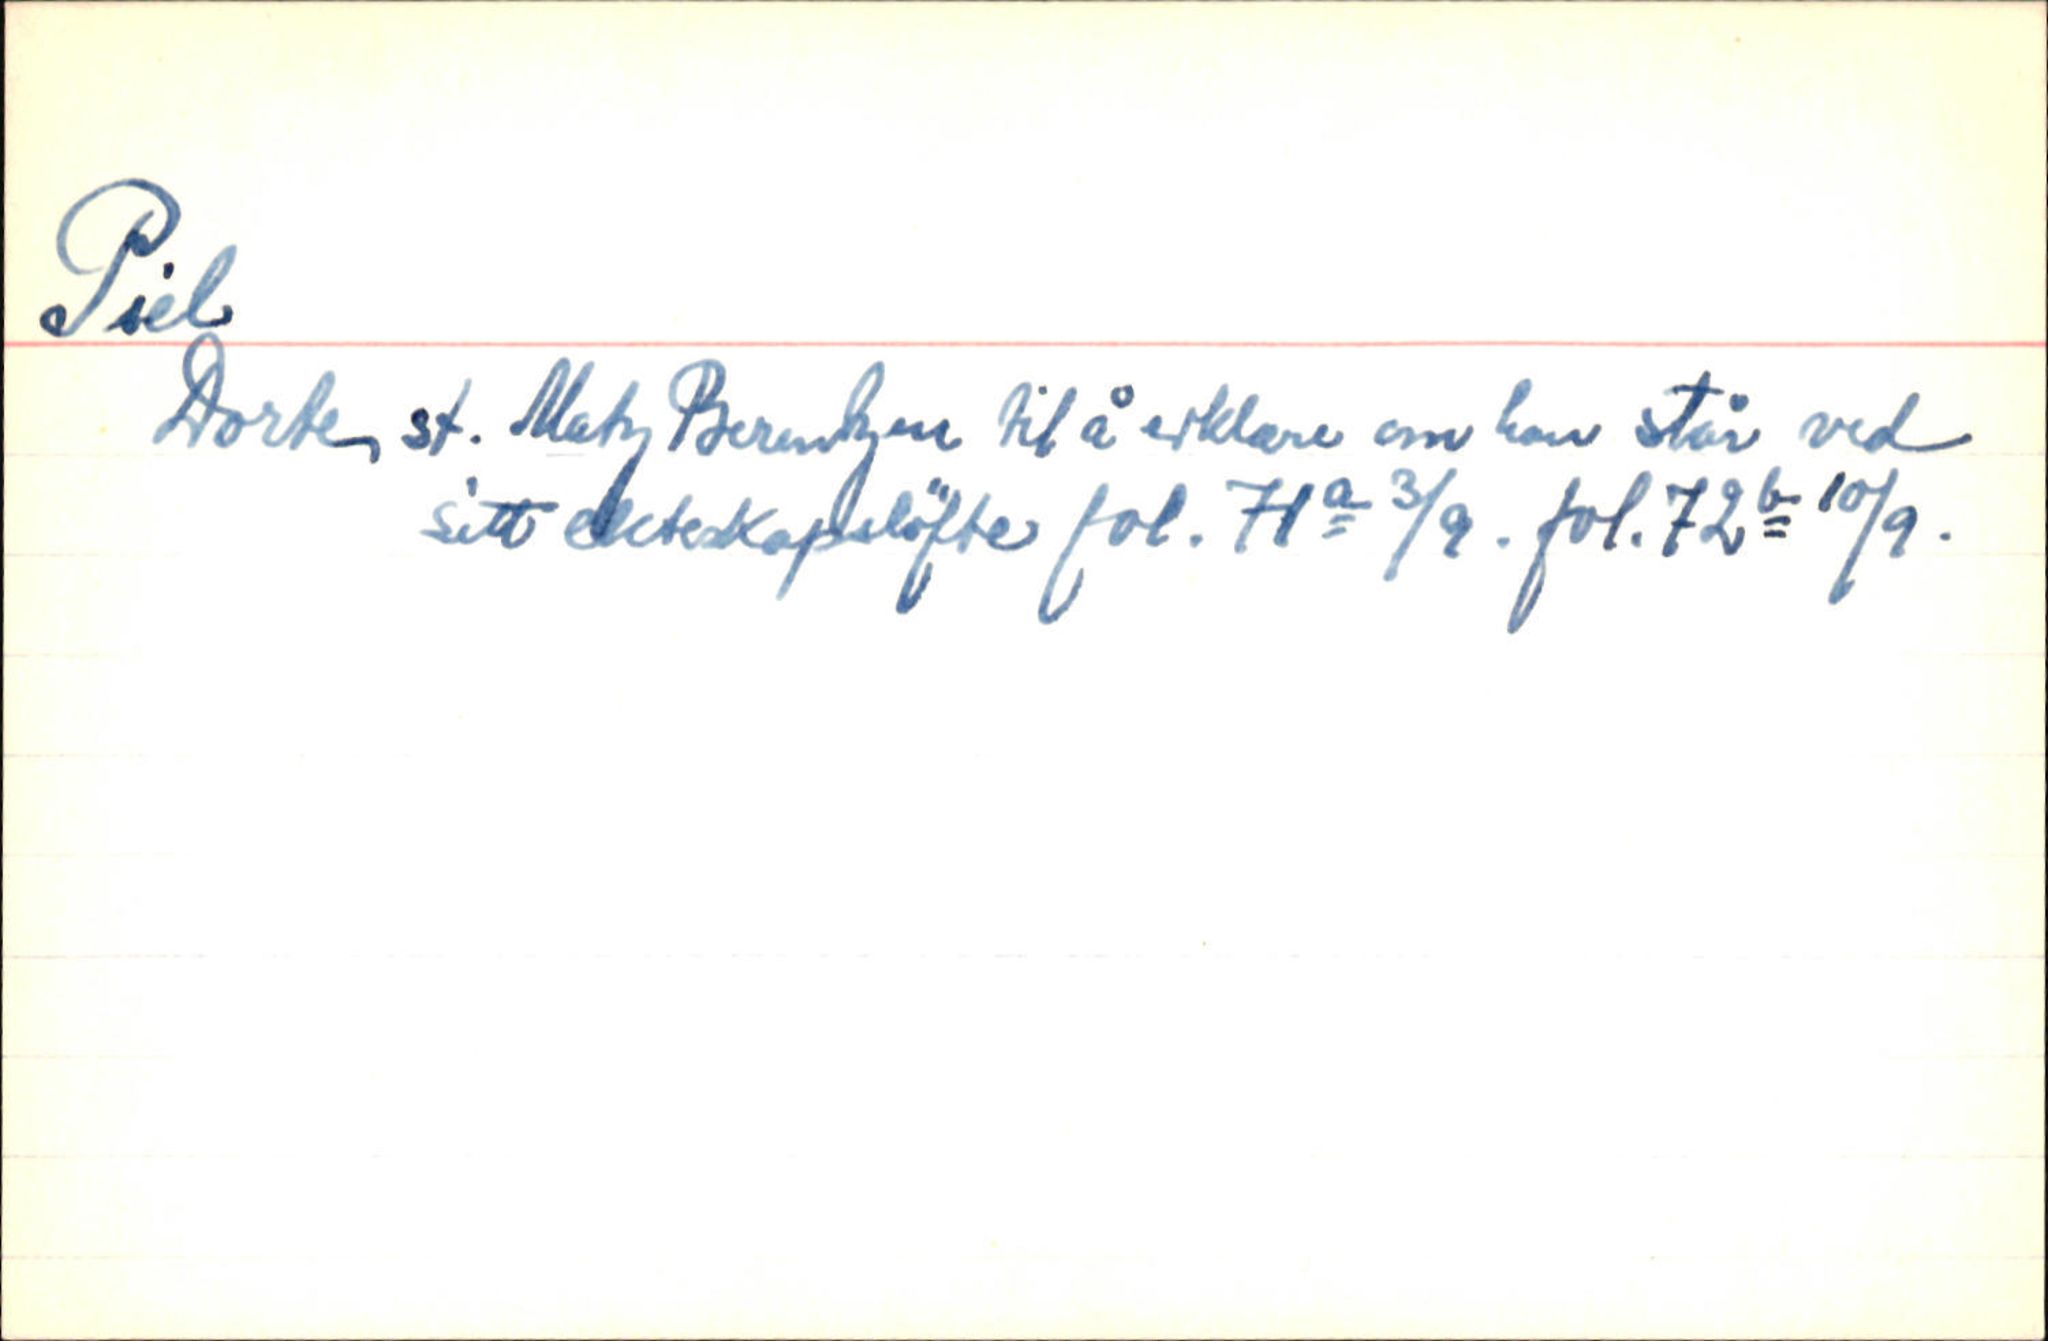 Piel
Dorte, st. Matz Berentzen til å erklære om han står ved
sitt ekteskapslöfte fol. 71a 3/9. fol. 72b 10/9.